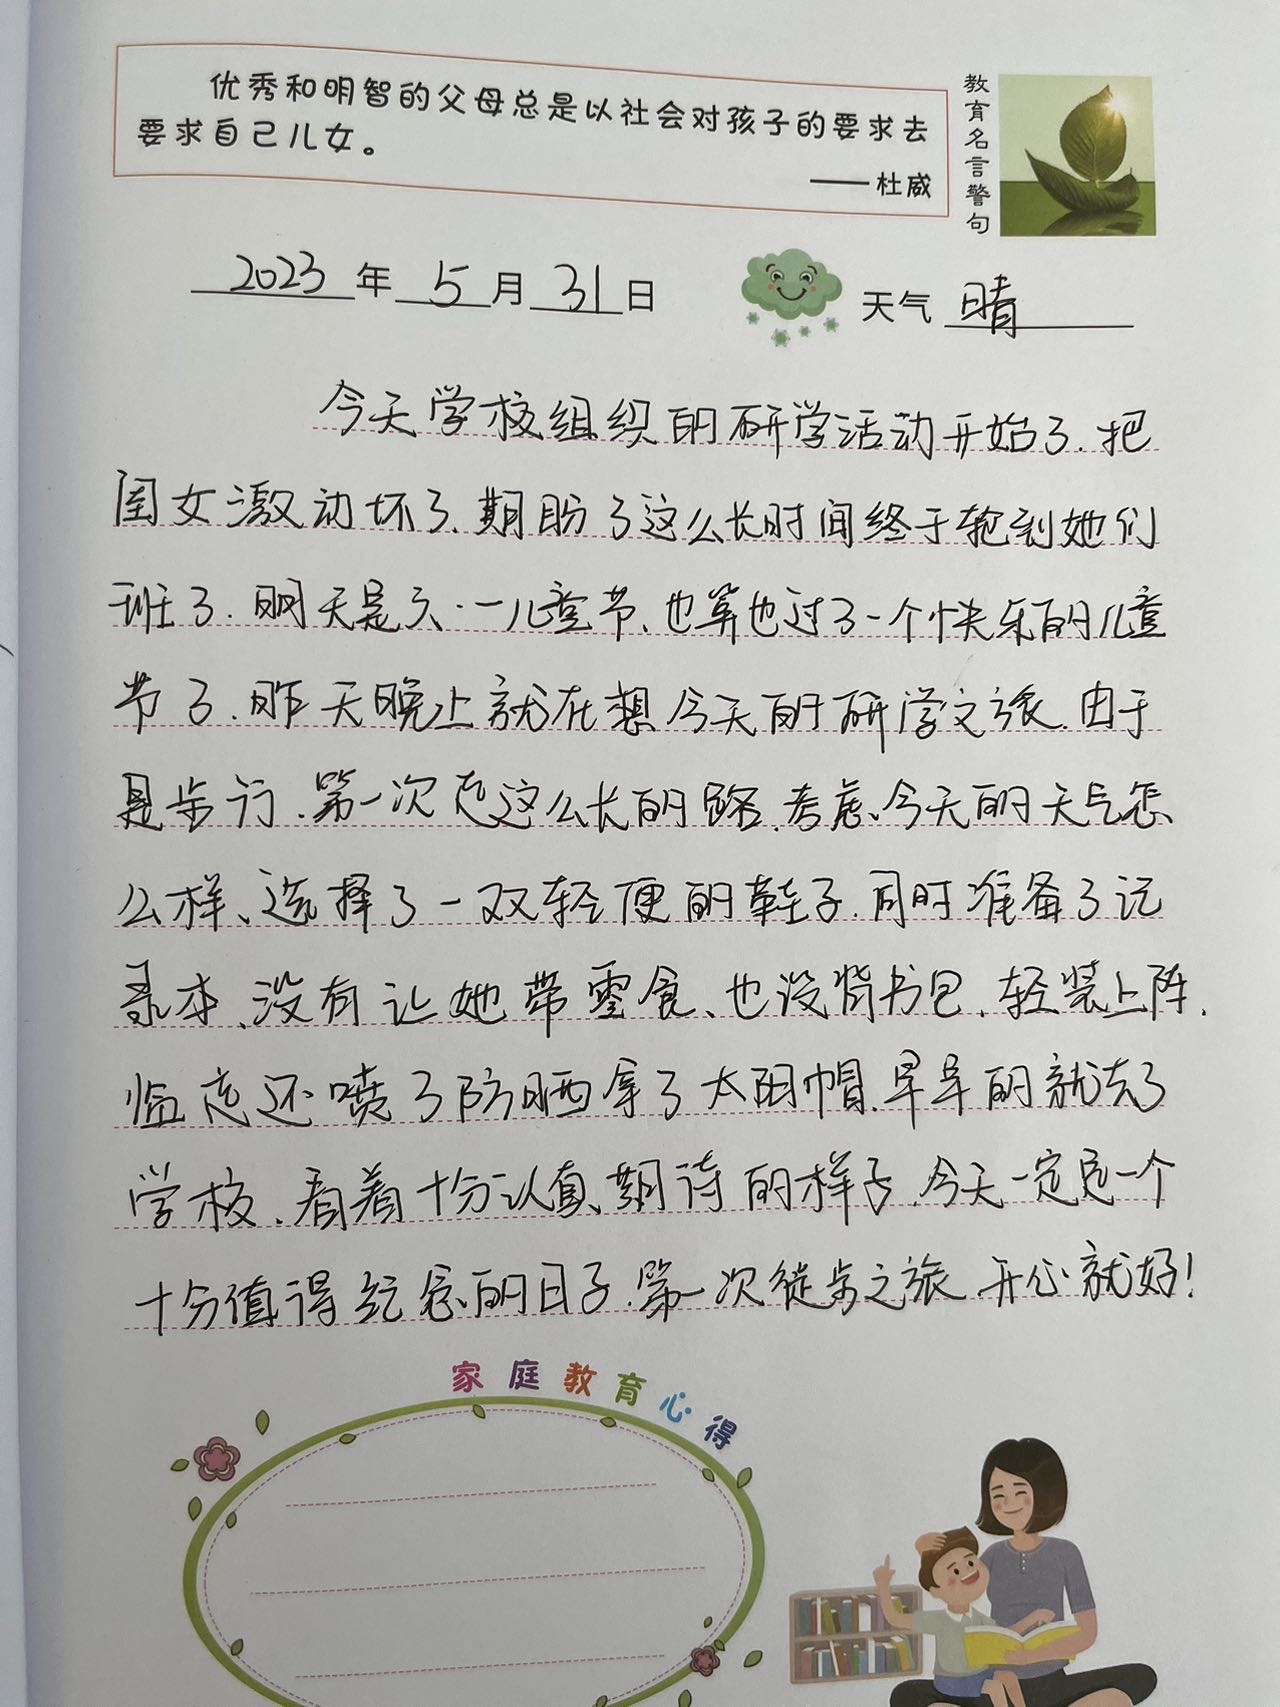 优秀和明智的父母总是以社会对孩子的要求去
要求自己儿女。
——杜威
教育名言警句
2023年5月31日
天气 晴
今天学校组织的研学活动开始了.把
闺女激动坏了、期盼了这么长时间终于轮到她们
班了.明天是六·一儿童节、也算也过了一个快乐的儿童
节了.昨天晚上就在想今天的研学之旅.由于
是步行.第一次走这么长的路.考虑今天的天气怎
么样、选择了一双轻便的鞋子.同时准备了记
录本、没有让她带零食、也没背书包.轻装上阵.
临走还喷了防晒拿了太阳帽.早早的就去了
学校.看着十分认真、期待的样子.今天一定是一个
十分值得纪念的日子.第一次徒步之旅.开心就好!
家庭教育心得